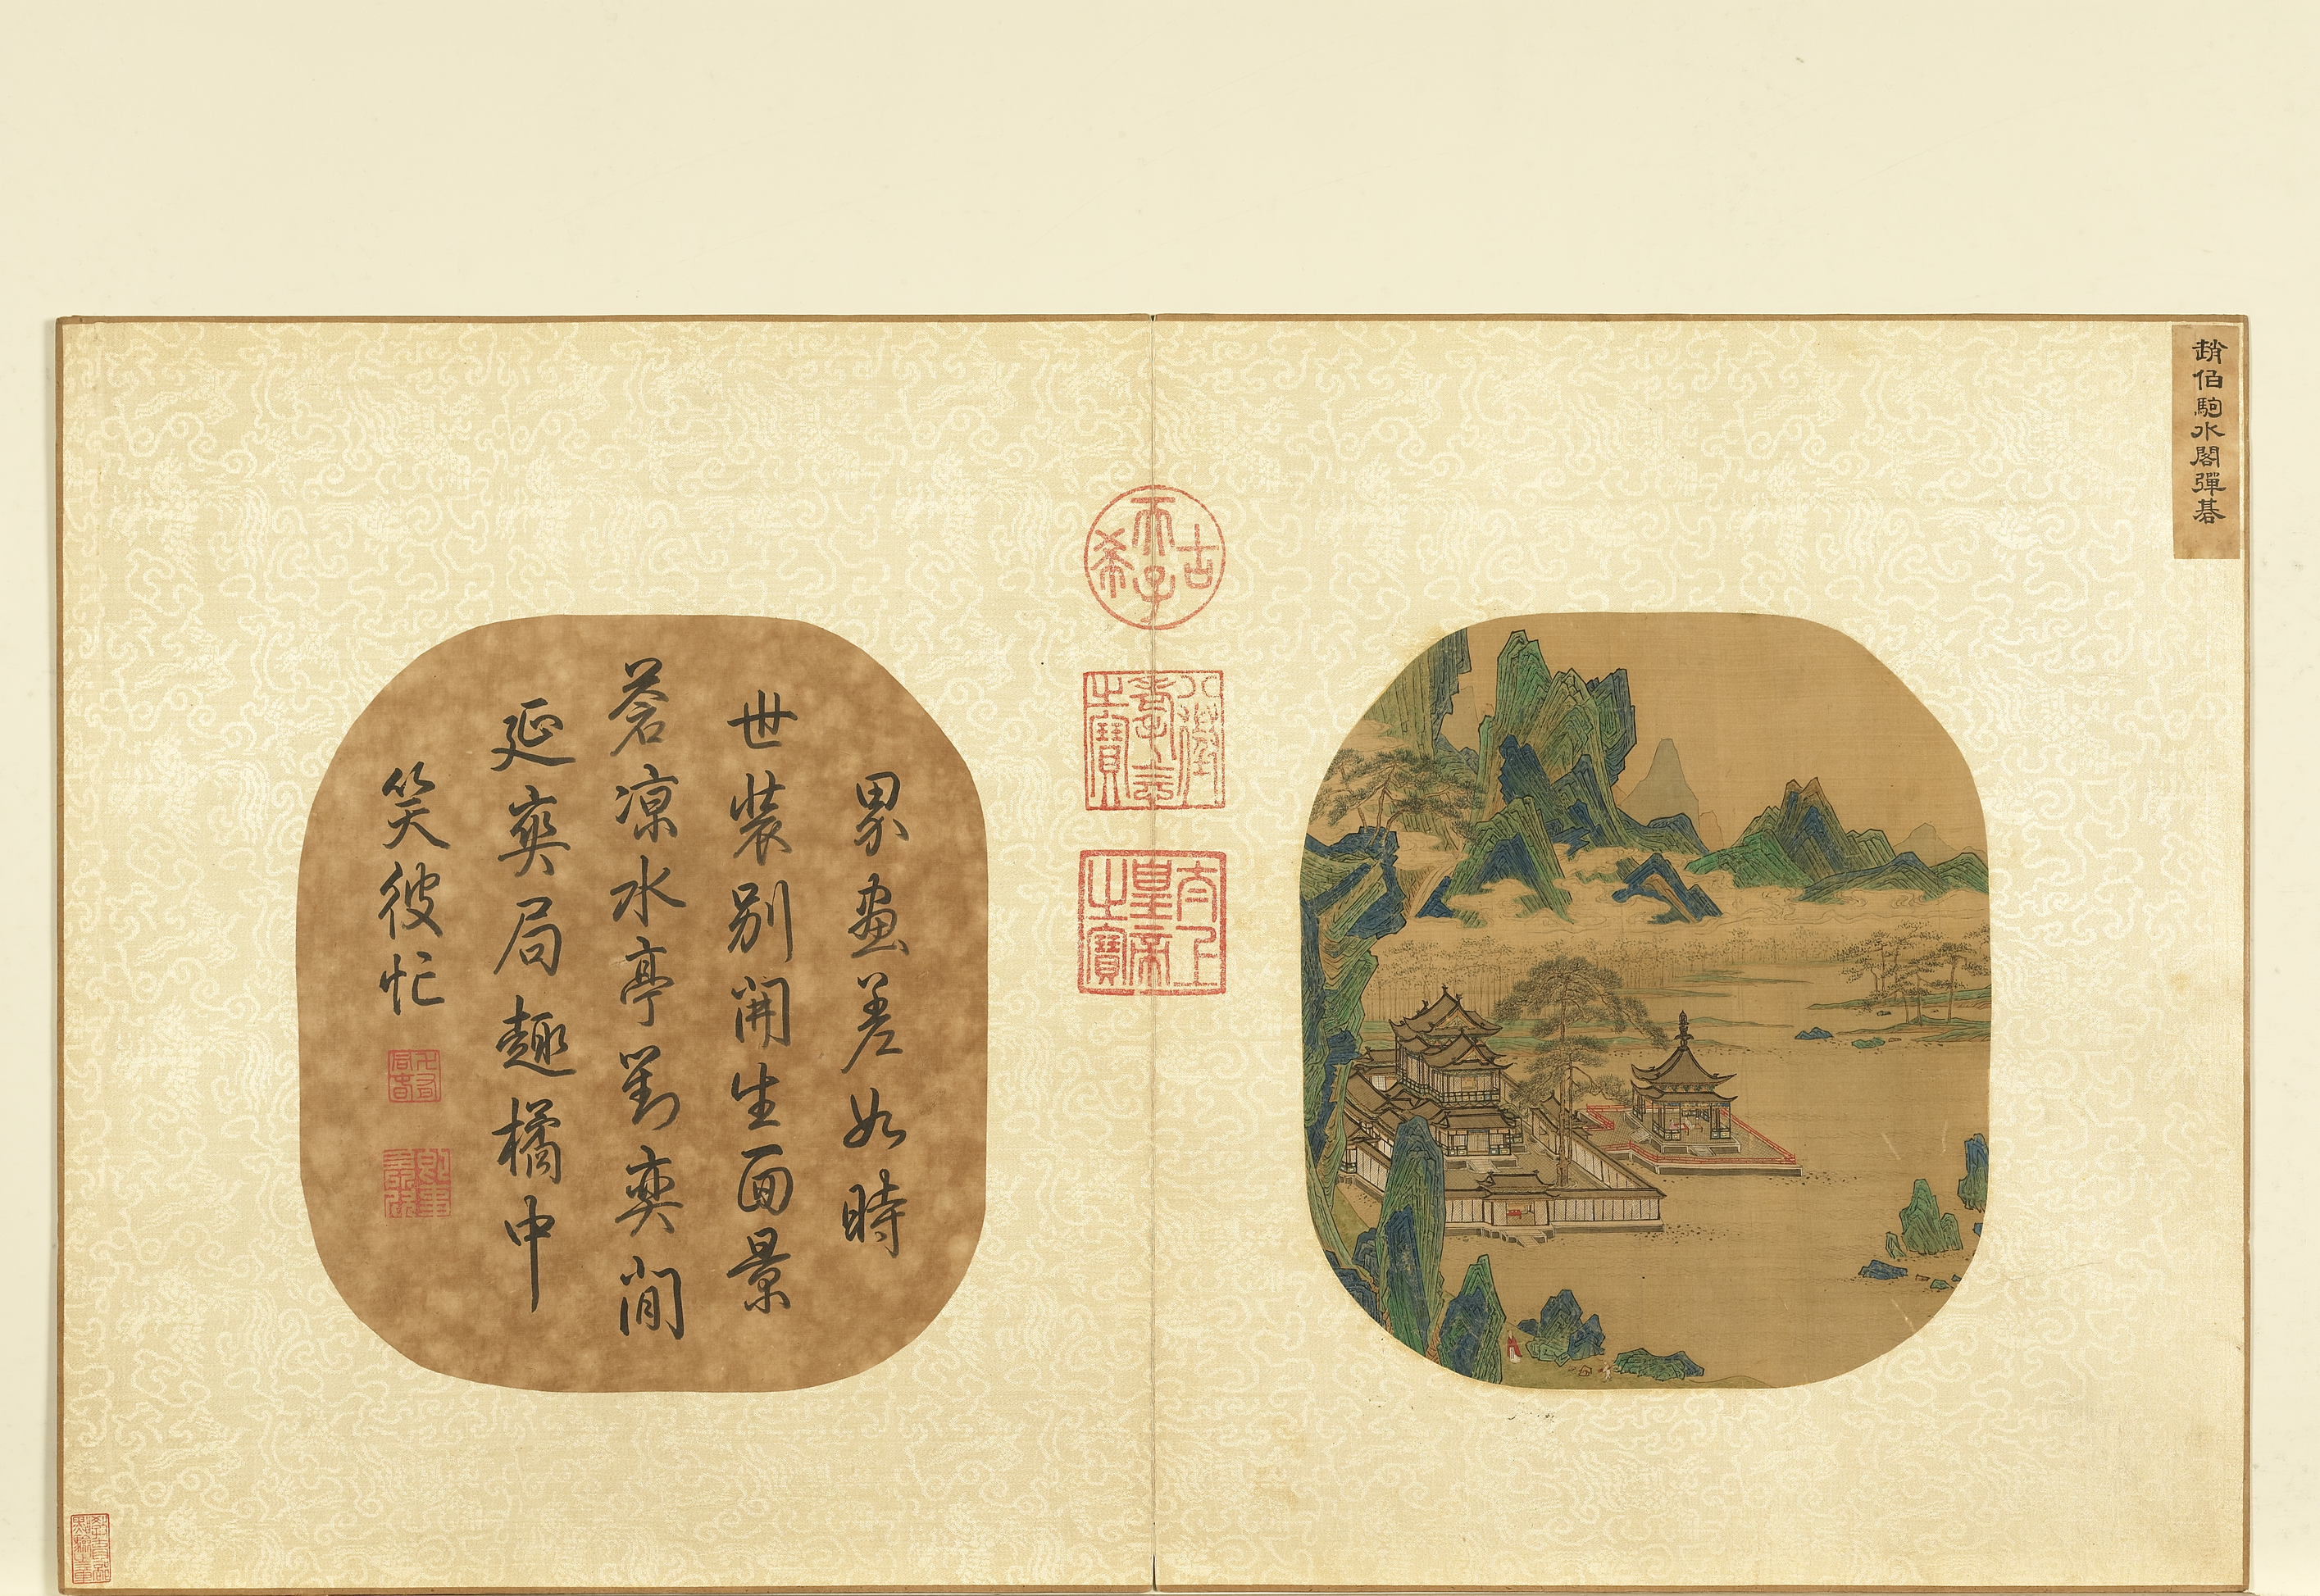 趙伯駒水閣彈碁
古希天子
八徵耄念之寶
太上皇帝之寶
界畫差如時
世裝別開生面景
蒼涼水亭對奕閒
延爽局趣橘中
笑彼忙